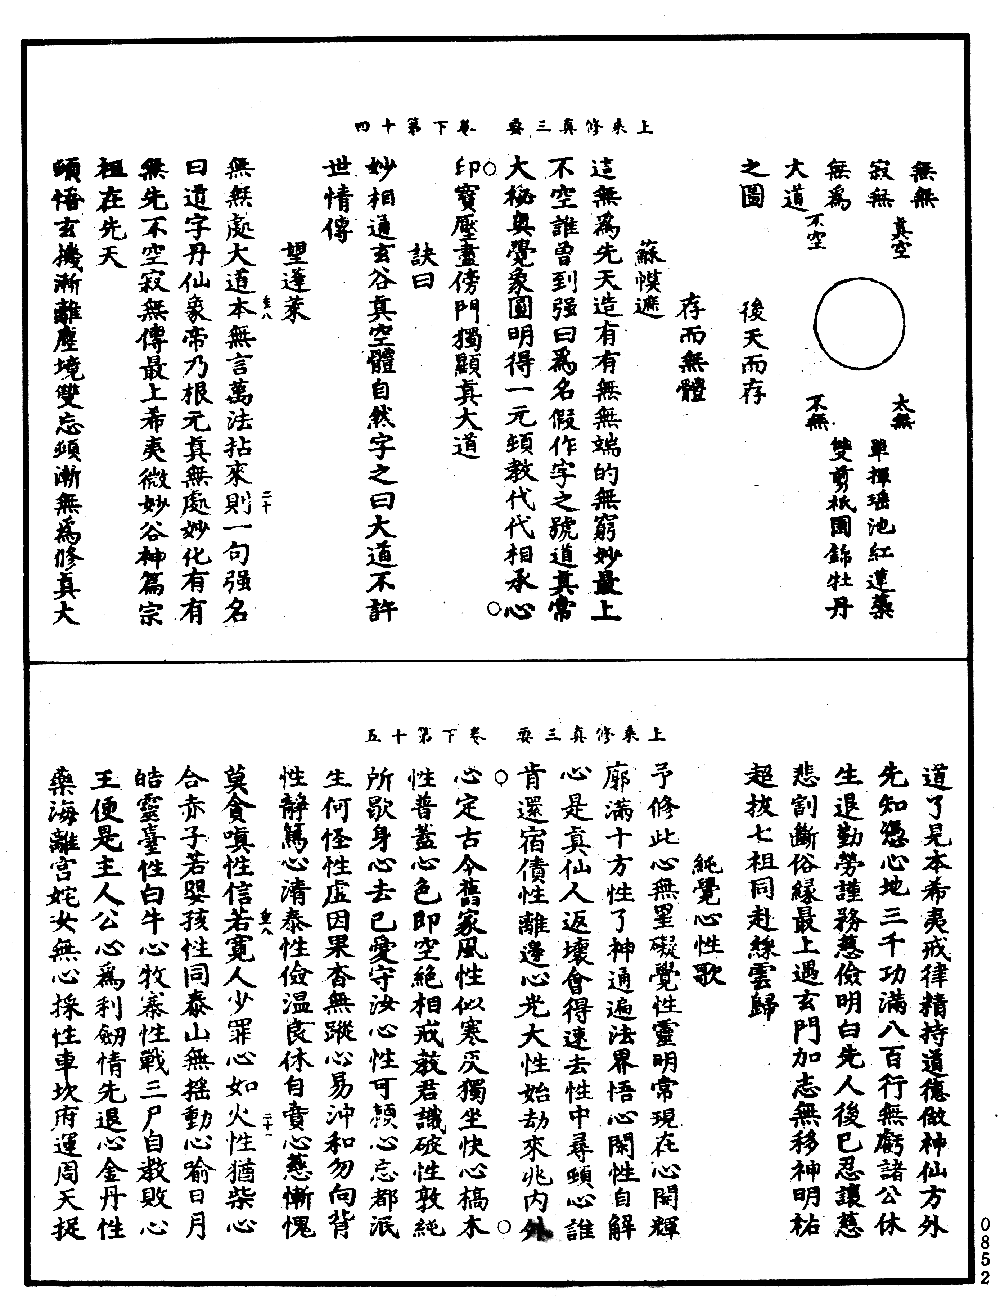 上乘修真三要　卷下第十四
無無
寂無
無為
大道
之圖
真空
不空
太無
不無
單撣瑶池紅蓮藥
雙剪祇園錦牡丹
後天而存
存而無體
蘇幙遮
這無為先天造有有無無端的無窮妙最上
不空誰曾到强曰為名假作字之號道真常
大秘奥覺象圓明得一元頓教代代相承心
印寶壓盡傍門獨顯真大道
訣曰
妙相通玄谷真空體自然字之曰大道不許
世情傳
望蓬莱
無無處大道本無言萬法拈來則一句强名
曰道字丹仙象帝乃根元真無處妙化有有
無先不空寂無傳最上希夷微妙谷神篇宗
祖在先天
頓悟玄機漸離塵境雙忘頓漸無為修真大
上乘修真三要　卷下第十五
道了見本希夷戒律精持道德做神仙方外
先知憑心地三千功滿八百行無虧諸公休
生退勤勞謹務慈儉明白先人後已忍讓慈
悲割斷俗緣最上遇玄門加志無移神明祐
超拔七祖同赴綵雲歸
純覺心性歌
予修此心無罣礙覺性靈明常現在心開輝
廓滿十方性了神通遍法界悟心閑性自解
心是真仙人返壞會得速去性中尋頤心誰
肯還宿債性離邊心光大性始劫來兆内外
心定古今舊家風性似寒灰獨坐快心槁木
性普蓋心色即空絶相戒教君識破性敦純
所歇身心去已愛守汝心性可頼心忘都泯
生何怪性虚因果杳無蹤心易沖和勿向背
性静篤心清泰性儉温良休自賁心慈慚愧
莫貪嗔性信若寬人少罪心如火性猶柴心
合赤子若嬰孩性同泰山無摇動心喻日月
皓靈臺性白牛心牧寨性戰三尸自教敗心
王便是主人公心為利劒情先退心金丹性
藥海離宫姹女無心採性車坎府運周天捉
0852